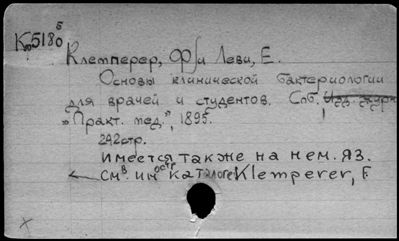 Кр5180 б
Клемперер, Ф и Леви, Е.
Основы клинической бактериологии
для врачей и студентов. Спб. Изд. журн
"Практ. мед.", 1895.
242стр.
Имеется также на нем. яз.
см в иност каталоге Klemperer, F